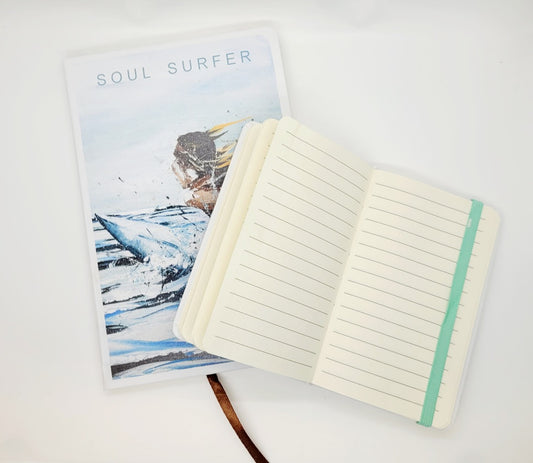 SOUL SURFER